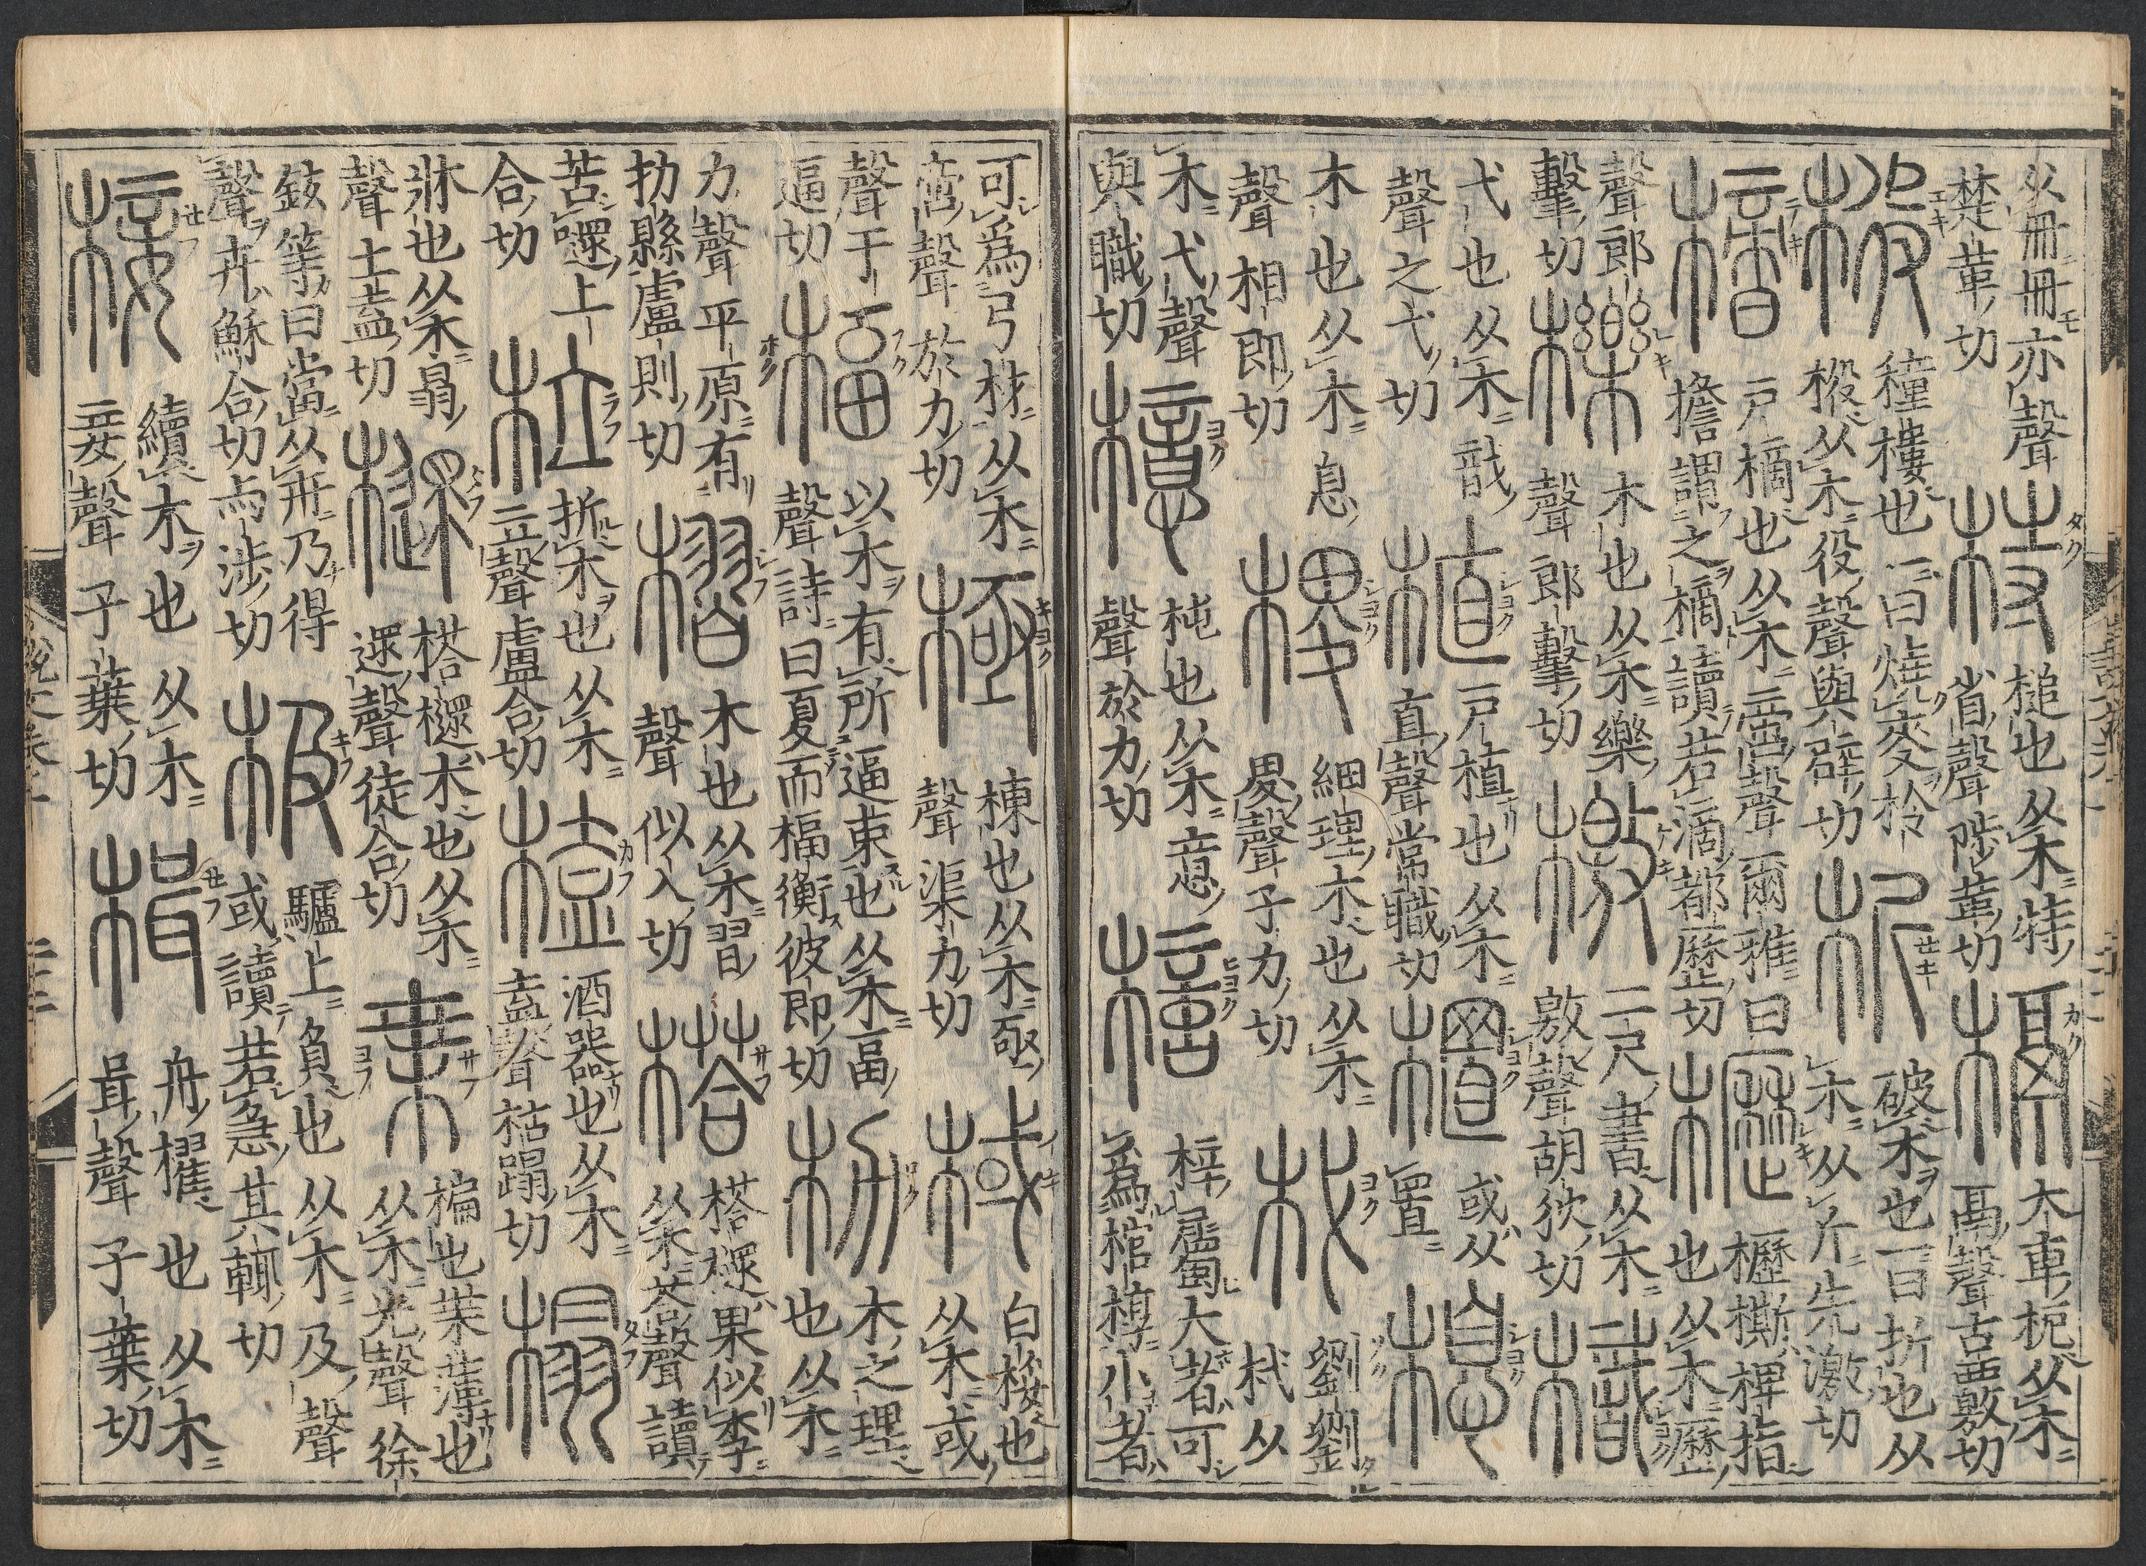 从冊冊亦聲
楚革切
㭙
槌也从木特
省聲陟革切
槅
大車枙从木
鬲聲古覈切
㭓
穜樓也一曰燒麥柃
椴从木役聲與辟切
析
破木也一曰折也从
木从斤先激切
樀
戶樀也从木啻聲爾雅曰
檐謂之樀讀若滴都歷切
櫪
櫪㯕椑指
也从木歷
聲郎
擊切
櫟
木也从木樂
聲郎擊切
檄
二尺書从木
敫聲胡狄切
樴
弋也从木戠
聲之弋切
植
戶植也从木
直聲常職切
㯰
或从
置
楒
木也从木息
聲相即切
㮨
細理木也从木
畟聲子力切
杙
劉劉
杙从
木弋聲
與職切
檍
杶也从木意
聲於力切
𣚍
梓屬大者可
為棺椁小者
可為弓材从木
啻聲於力切
極
棟也从木亟
聲渠力切
棫
白桵也
从木或
聲于
逼切
楅
以木有所逼束也从木畐
聲詩曰夏而楅衡彼即切
朸
木之理
也从木
力聲平原有
朸縣盧則切
槢
木也从木習
聲似入切
榙
榙㯚果似李
从木荅聲讀
若還上
合切
柆
折木也从木
立聲盧合切
榼
酒器也从木
盍聲枯蹋切
榻
牀也从木𦐇
聲土盍切
㯚
榙㯚木也从木
遝聲徒合切
枼
楄也枼薄也
从木世聲徐
鉉等曰當从卅乃得
聲卅穌合切与涉切
极
驢上負也从木及聲
或讀若急其輒切
椄
續木也从木
妾聲子葉切
楫
舟櫂也从木
咠聲子葉切